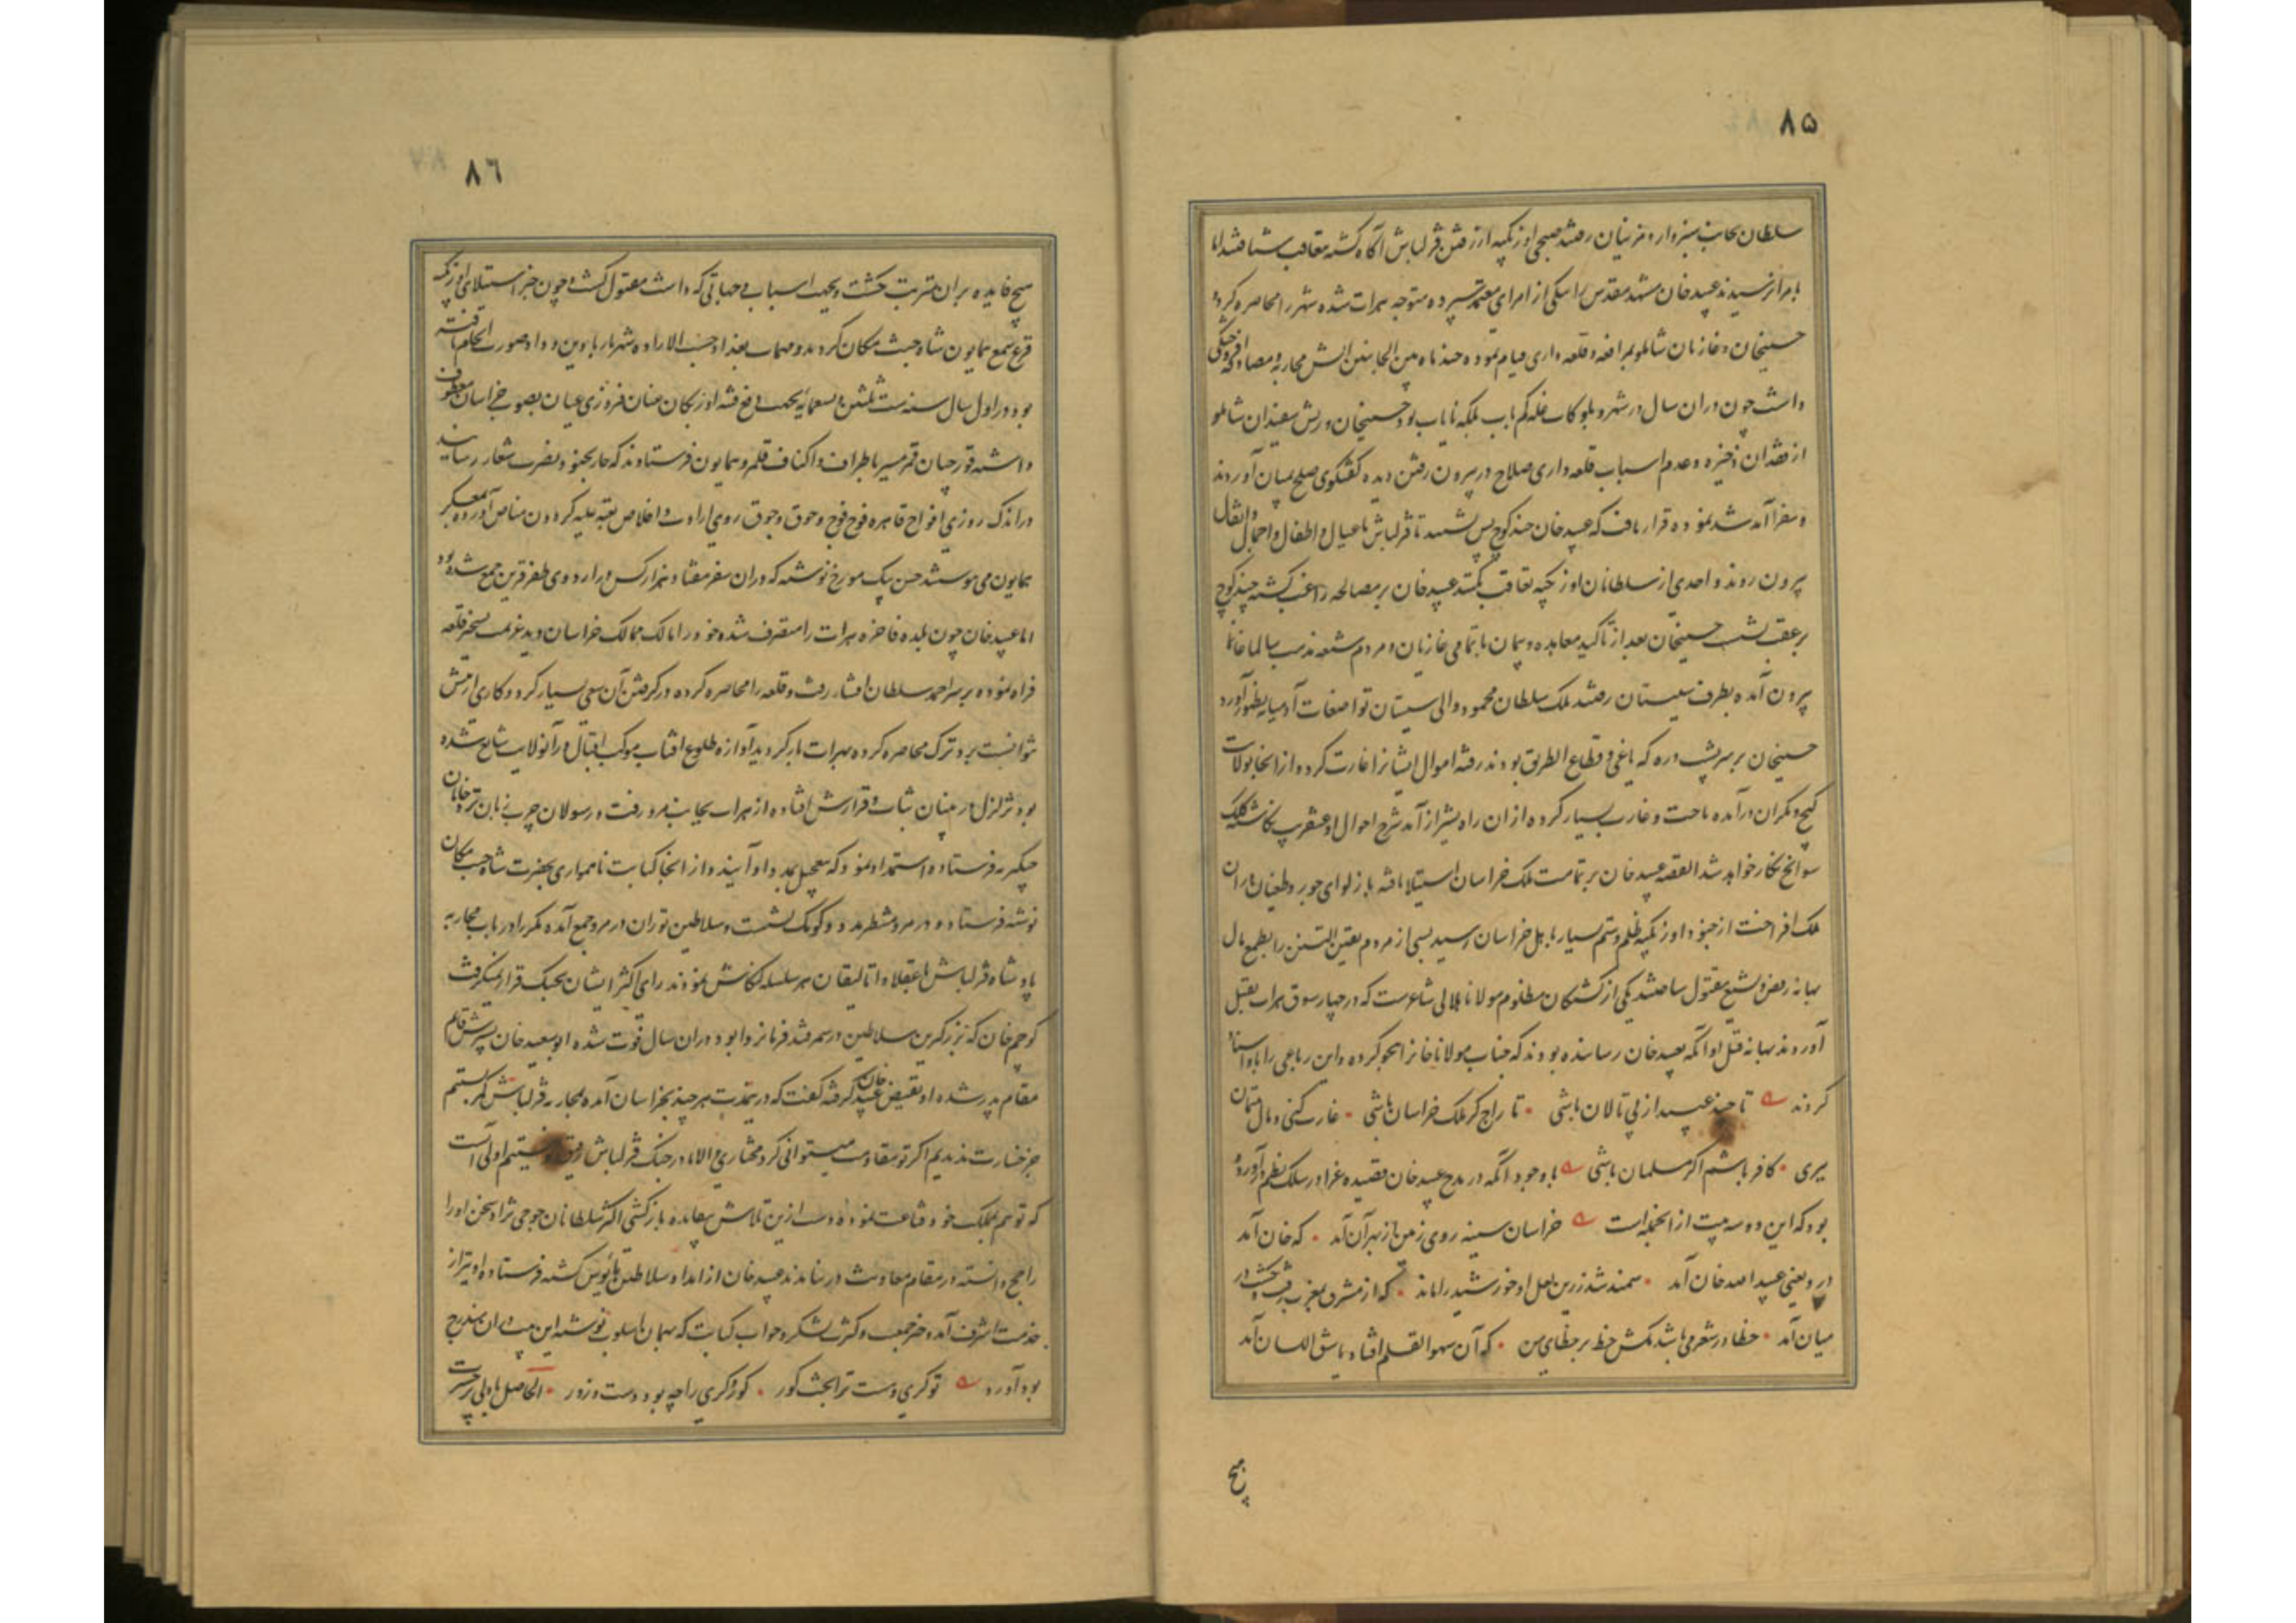 ۸۵
سلطان بجانب سبزوار و مزینان رفتند صبحی اوزبکیه از رفتن قزلباش آگاه گشته متعاقب شتافتند اما
بامرا نرسیدند عبید خان مشهد مقدس را بیکی از امرای معتمد سپرده متوجه هرات شده شهر را محاصره کرد و
حسینخان و غازیان شاملو بمدافعه و قلعه داری قیام نموده چند ماه من الجانبین آتش محاربه و مصادقه افروختگی
داشت چون دران سال در شهر و بلوکات غله کم یاب بلکه نایاب بود حسینخان و ریش سفیدان شاملو
از فقدان ذخیره و عدم اسباب قلعه داری صلاح در بیرون رفتن دیده گفتگوی صلح بمیان آوردند
و سفرا آمد شد نموده قرار یافت که عبید خان چند کوچ پس نشیند تا قزلباش با عیال و اطفال و احمال و اثقال
بیرون روند و احدی از سلطانان اوزبکیه تعاقب نکند عبید خان بر مصالحه راغب گشته چند کوچ
بر عقب نشست حسینخان بعد از تأکید معاهده و پیمان با تمامی غازیان و مردم شیعه مذهب سالما غانما
بیرون آمده بطرف سیستان رفتند ملک سلطان محمود والی سیستان تواضعات آدمیانه بظهور آورد
حسینخان بر سر پشت دره که یاغی و قطاع الطریق بودند رفته اموال ایشانرا غارت کرد و از انجا بولایت
کیج و مکران درآمده تاخت و غارت بسیار کرده ازان راه بشیراز آمد شرح احوال او عنقریب نگاشته کلک
سوانح نگار خواهد شد القصه عبید خان بر تمامت ملک خراسان استیلا یافته باز لوای جور و طغیان دران
ملک افراخت از جنود اوزبکیه ظلم و ستم بسیار باهل خراسان رسید بسی از مردم یقین التسنن را بطمع مال
بهانه رفض و تشیع مقتول ساختند یکی از کشتگان مظلوم مولانا هلالی شاعرست که در چهار سوق هرات بقتل
آوردند بهانه قتل او آنکه بعبید خان رسانیده بودند که جناب مولانا خانرا هجو کرده و این رباعی را باو اسناد
کردند تا چند عبید از پی تالان باشی تاراج گر ملک خراسان باشی غارت کنی و مال یتیمان
ببری کافر باشم اگر مسلمان باشی با وجود آنکه در مدح عبید خان قصیده غرا در سلک نظم درآورده
بود که این دو سه بیت از انجمله است خراسان سینه روی زمین از بهر آن آمد که جان آمد
درو یعنی عبید الله خان آمد سمند تند زرین نعل او خورشید را ماند که از مشرق بمغرب رفت و یکشب در
میان آمد خطا در شعر می باشد مکش خط بر خطای من که آن سهو القلم افتاد یا سبق اللسان آمد
هیچ
۸٦
هیچ فایده بران مترتب نگشت و بجهت اسبابی و جهاتی که داشت مقتول گشت و چون خبر استیلای اوزبکیه
قرع سمع همایون شاه جنت مکان گردید و مهمات بغداد حسب الاراده شهریار با دین و داد صورت انجام یافته
بود در اول سال سنه ست ثلثین و تسعمائه بجهت دفع فتنه اوزبکان عنان فیروزی عیان بصوب خراسان معطوف
داشته قورچیان قمر مسیر باطراف و اکناف قلمرو همایون فرستادند که جار بجنود نصرت شعار رسانید
در اندک روزی افواج قاهره فوج فوج و جوق جوق روی ارادت و اخلاص بعتبه علیه گردون مناص آورده بمعسکر
همایون می پیوستند حسن بیک مورخ نوشته که دران سفر هفتاد هزار کس در اردوی ظفر قرین جمع شده بود
اما عبید خان چون بلده فاخره هرات را متصرف شده خود را مالک ممالک خراسان دید عزیمت تسخیر قلعه
فراه نموده بر سر احمد سلطان افشار رفت و قلعه را محاصره کرده در گرفتن آن سعی بسیار کرد و کاری از پیش
نتوانست برد ترک محاصره کرده بهرات بازگردید آوازه طلوع آفتاب موکب اقبال در آنولایت شایع شده
بود تزلزل در بنیان ثبات و قرارش افتاده از هرات بجانب مرو رفت و رسولان چرب زبان نزد خانان
چنگیزیه فرستاده استمداد نمود که بتعجیل بمدد او آیند و از انجا کتابت ناهمواری بحضرت شاه جنت مکان
نوشته فرستاد و در مرو منتظر مدد و کومک نشست و سلاطین توران در مرو جمع آمده مکرر در باب محاربه
پادشاه قزلباش با عقلا و اتالیقان هر سلسله کنکاش نمودند رای اکثر ایشان بجنگ قرار نمیگرفت
کوچم خان که بزرگترین سلاطین و در سمرقند فرمانروا بود دران سال فوت شده ابوسعید خان پسرش قایم
مقام پدر شده او نقیض عبید خان گرفته گفت که درینمدت هر چند بخراسان آمده بمحاربه قزلباش کمر بستیم
جز خسارت ندیدیم اگر تو مقاومت میتوانی کرد مختاری والا ما در جنگ قزلباش رفیق تو نیستیم اولی آنست
که تو هم بملک خود قناعت نموده دست ازین تلاش بیفایده بازکشی اکثر سلطانان جوجی نژاد سخن او را
راجح دانسته در مقام معاونت در نیامدند عبید خان از امداد سلاطین مأیوس گشته فرستاده او نیز از
خدمت اشرف آمده خبر جمعیت و کثرت لشکر و جواب کتابت که بهمان اسلوب نوشته این بیت دران مندرج
بود آورد تو کری و دست ترا بخت کور کور و کری را چه بود دست و زور الحاصل با دلی پر حسرت